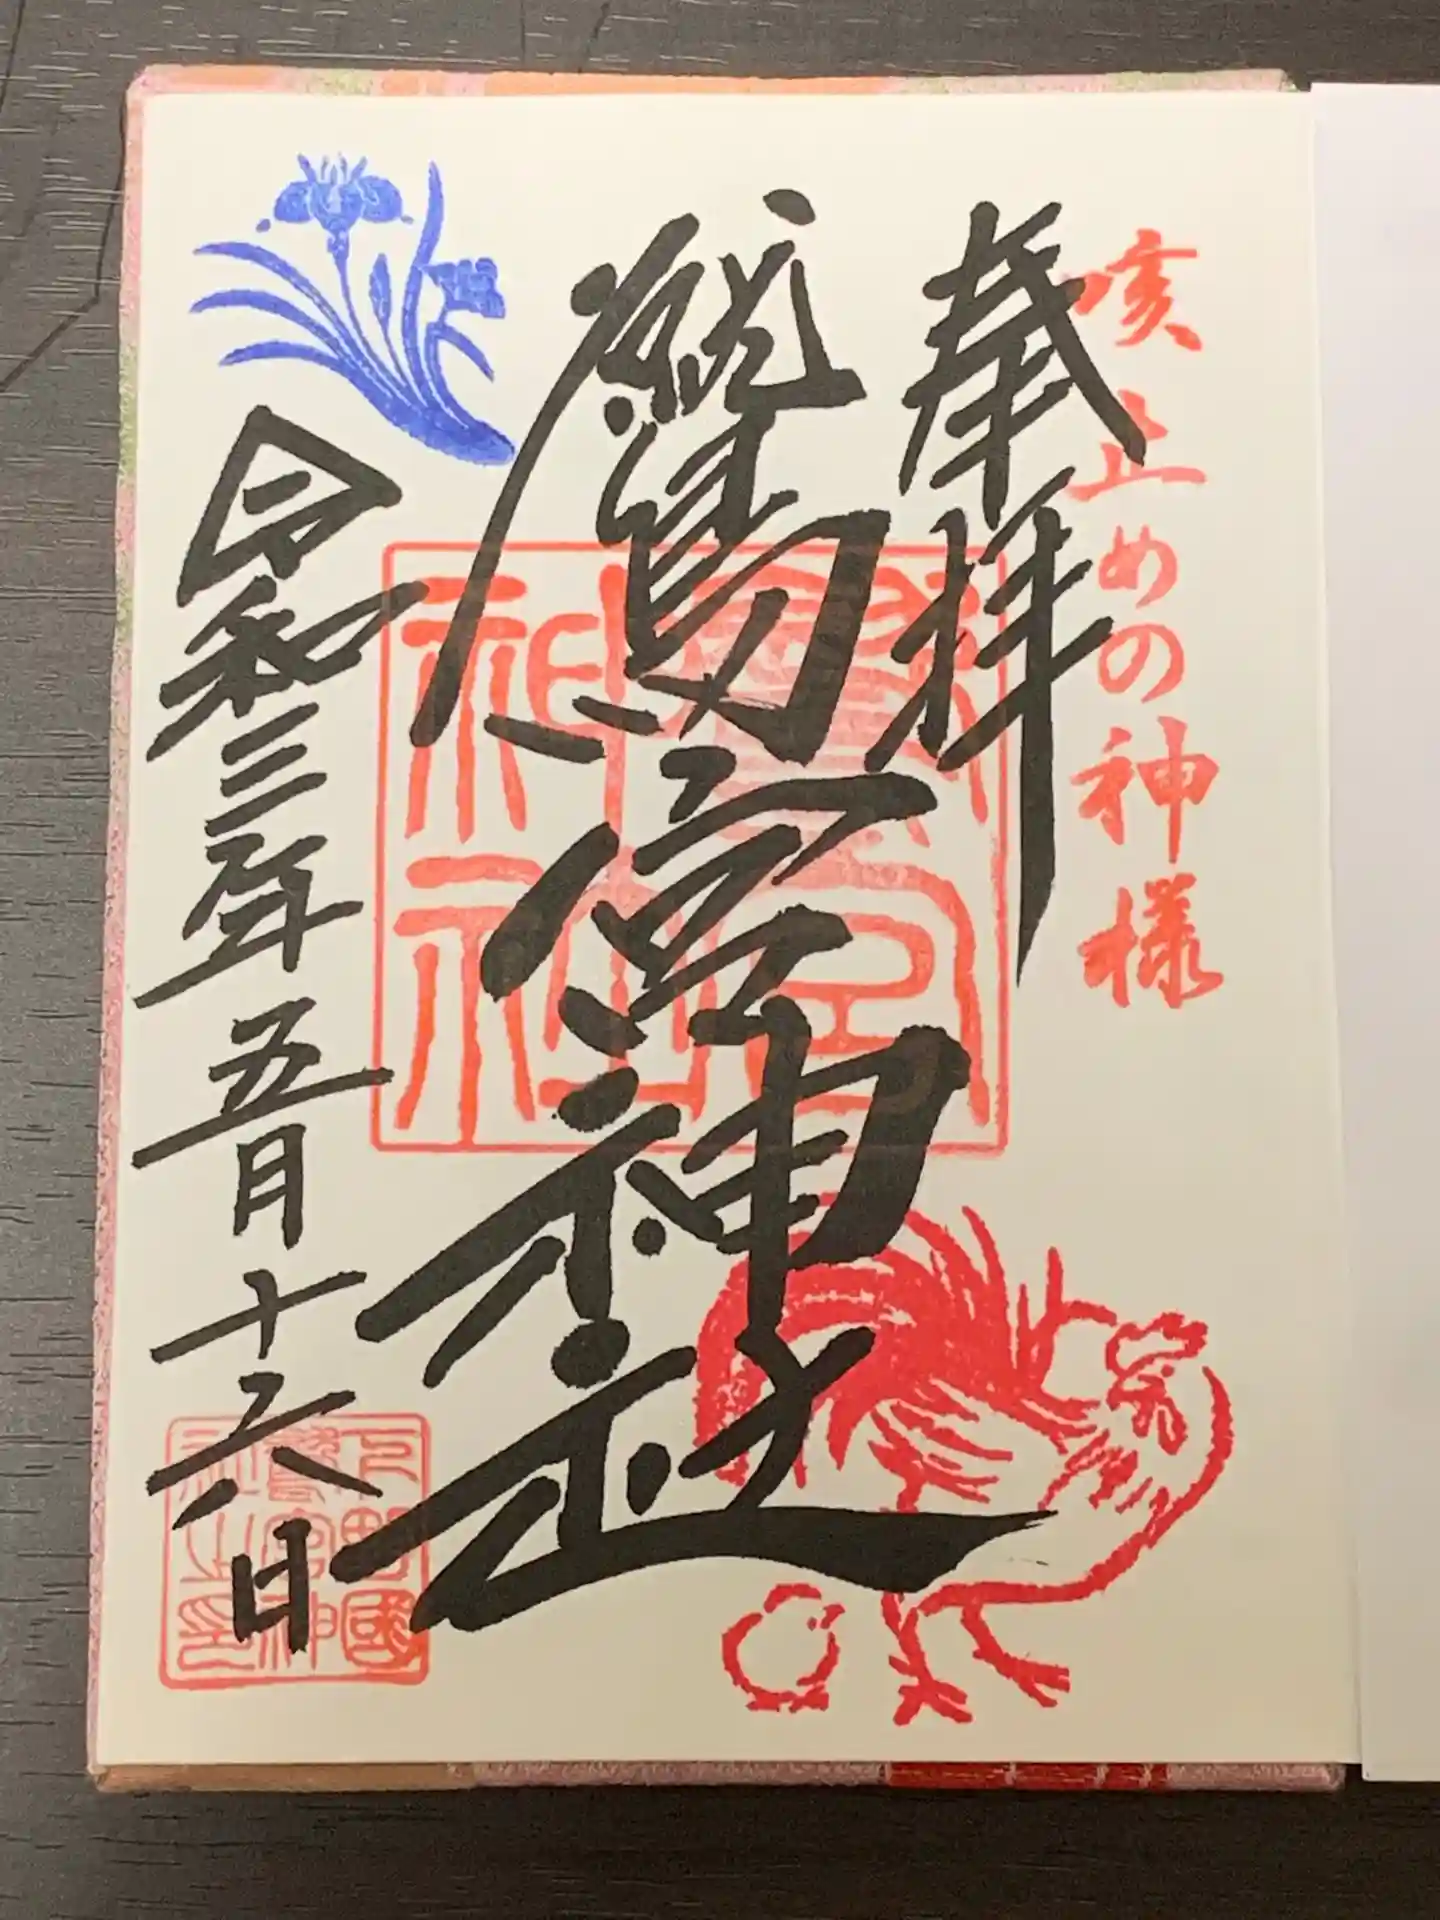 咳止めの神様
奉拝
鷲宮神社
鷲宮
神社
令和三年五月十六日
下野國
鷲宮神
社之印